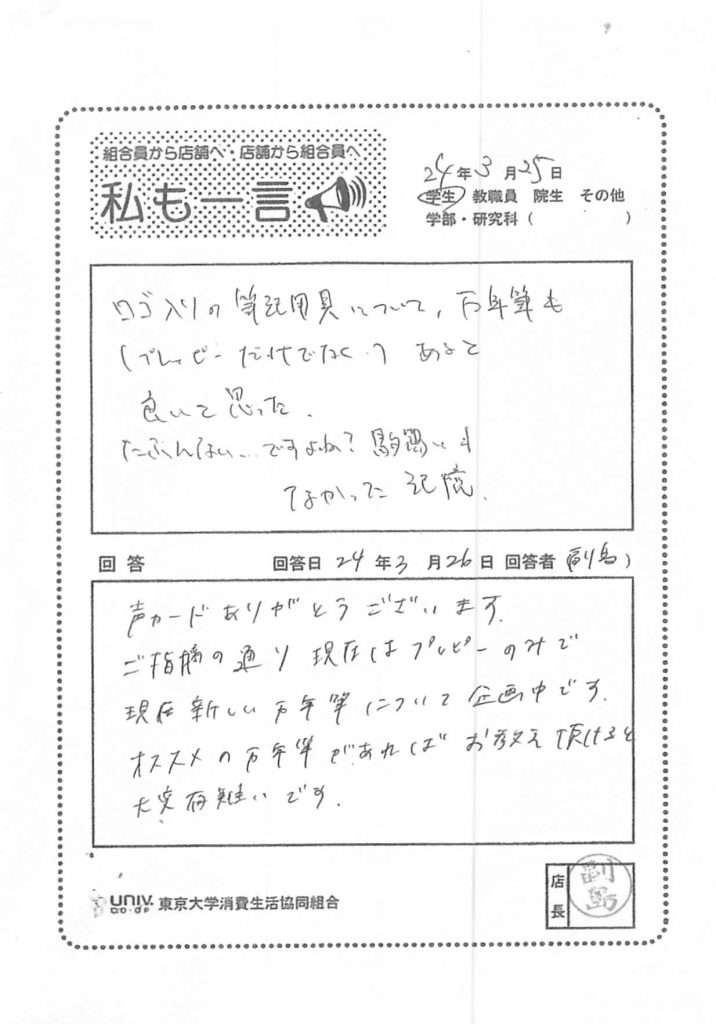 組合員から店舗へ・店舗から組合員へ
私も一言
24年3月25日
学生 教職員 院生 その他
学部・研究科( )
ロゴ入りの筆記用具について,万年筆も
(プレッピーだけでなく)あると
良いと思った.
たぶんない…ですよね?駒場にも
てなかった記憶.
回答 回答日 24年3月26日 回答者 副島)
声カードありがとうございます.
ご指摘の通り現在はプレピーのみで
現在新しい万年筆について企画中です.
オススメの万年筆があればお教え頂けると
大変有難いです.
univ. co-op 東京大学消費生活協同組合
店長 副島